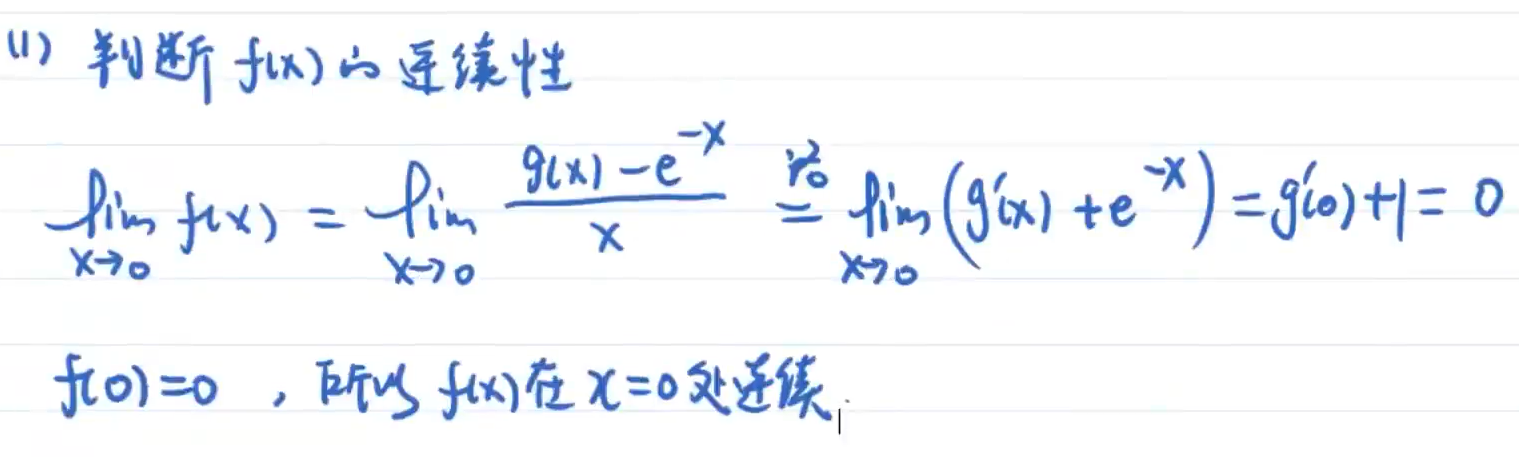 (1) 判断 f(x) 的 连续性
lim x→0 f(x) = lim x→0 (g(x) - e^{-x})/x = lim x→0 (g'(x) + e^{-x}) = g'(0)+1 = 0
f(0)=0 , 所以 f(x) 在 x=0 处连续.